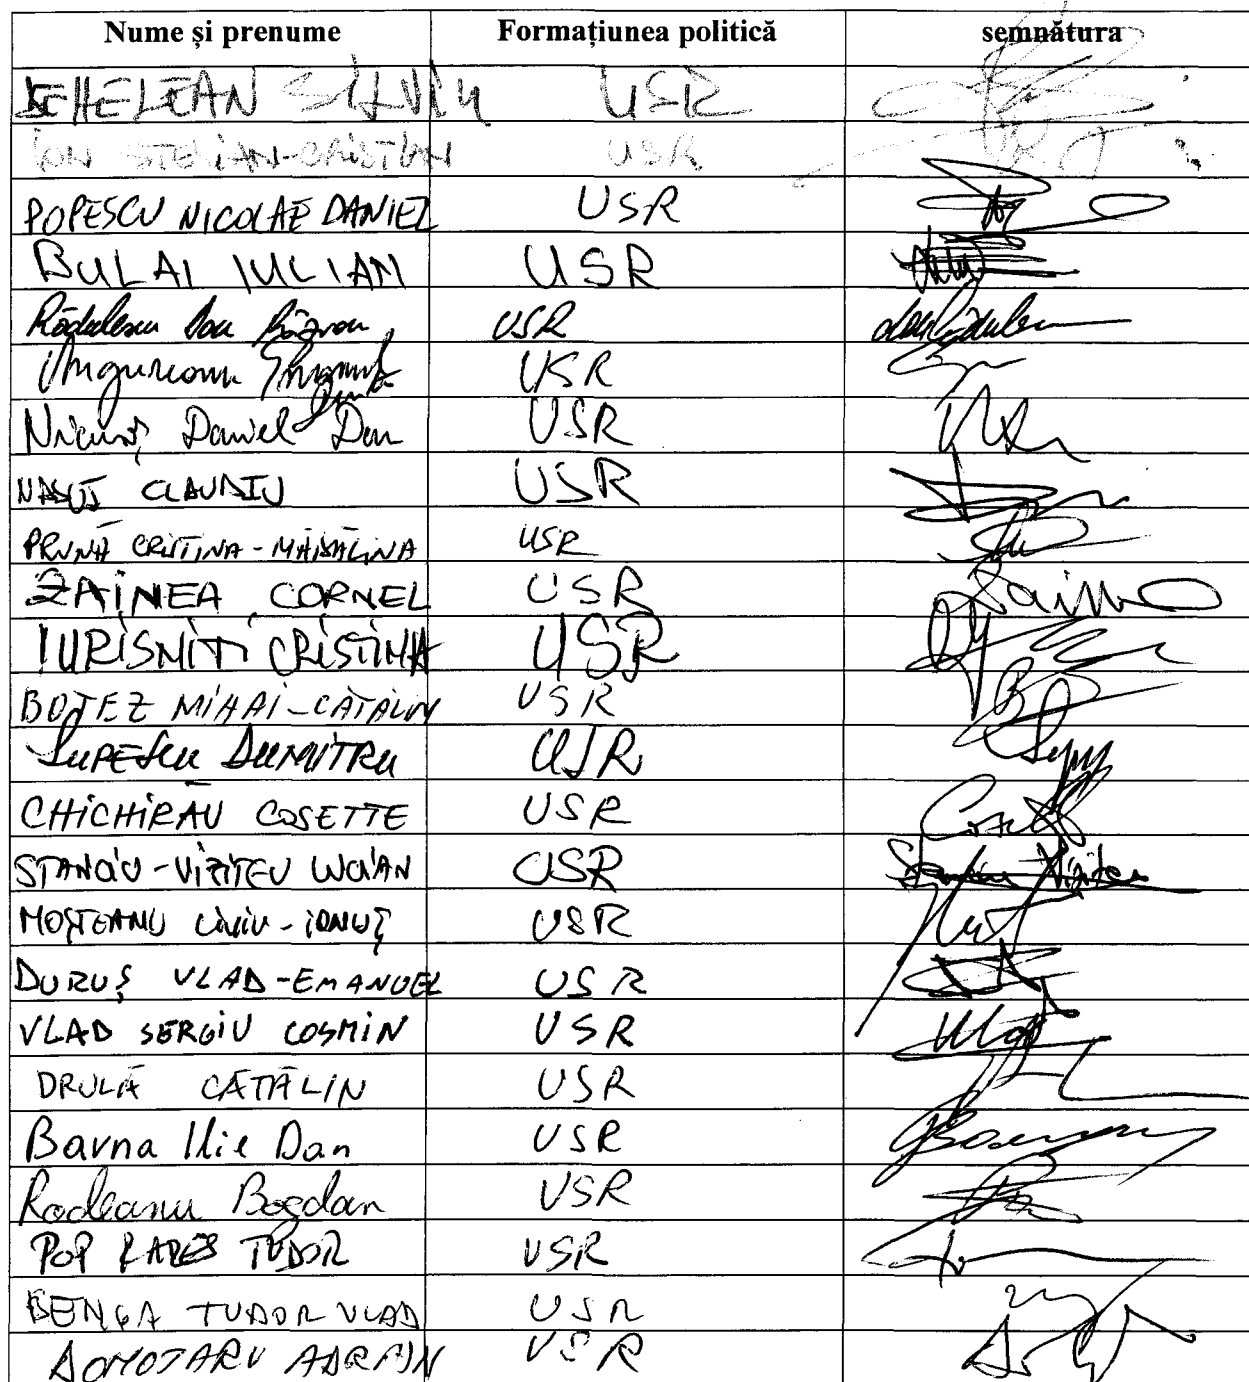 Nume și prenume Formațiunea politică semnătura
DEHELEAN SILVIU USR
ION STELIAN-CRISTIAN USR
POPESCU NICOLAE DANIEL USR
BULAI IULIAN USR
Rădulescu Dan Răzvan USR
Ungureanu USR
Nicuț Daniel Dan USR
NASUI CLAUDIU USR
PRUNĂ CRISTINA-MĂDĂLINA USR
ZAINEA CORNEL USR
IURISNITI CRISTINA USR
BOTEZ MIHAI-CĂTĂLIN USR
LUPESCU DUMITRU USR
CHICHIRĂU COSETTE USR
STANCIU-VIZITEU LUCIAN USR Stanciu Viziteu
MOȘTEANU LIVIU-IONUȚ USR
DURUȘ VLAD-EMANUEL USR
VLAD SERGIU COSMIN USR Vlad
DRULĂ CĂTĂLIN USR
Barna Ilie Dan USR
Rodeanu Bogdan USR
POP RAREȘ TUDOR USR
BENGA TUDOR VLAD USR
DOHOTARU ADRIAN USR